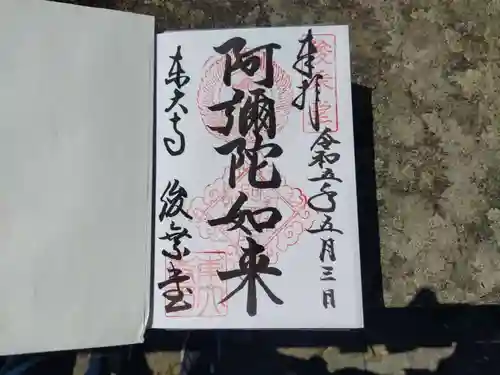 奉拝
令和五年五月三日
阿彌陀如来
東大寺
俊乗堂